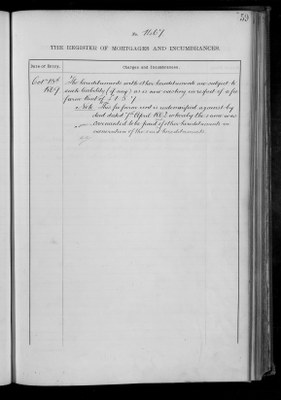 59
No. 1667
THE REGISTER OF MORTGAGES AND INCUMBRANCES.
Date of Entry. Charges and Incumbrances.
Oct 18th The hereditaments with other hereditaments are subject to
1867 such liability (if any) as is now existing in respect of a fee
farm Rent of
Note. This fee farm rent is indemnified against by
deed dated 7th April whereby the same was
covenanted to be paid if other hereditaments in
exoneration of the said hereditaments